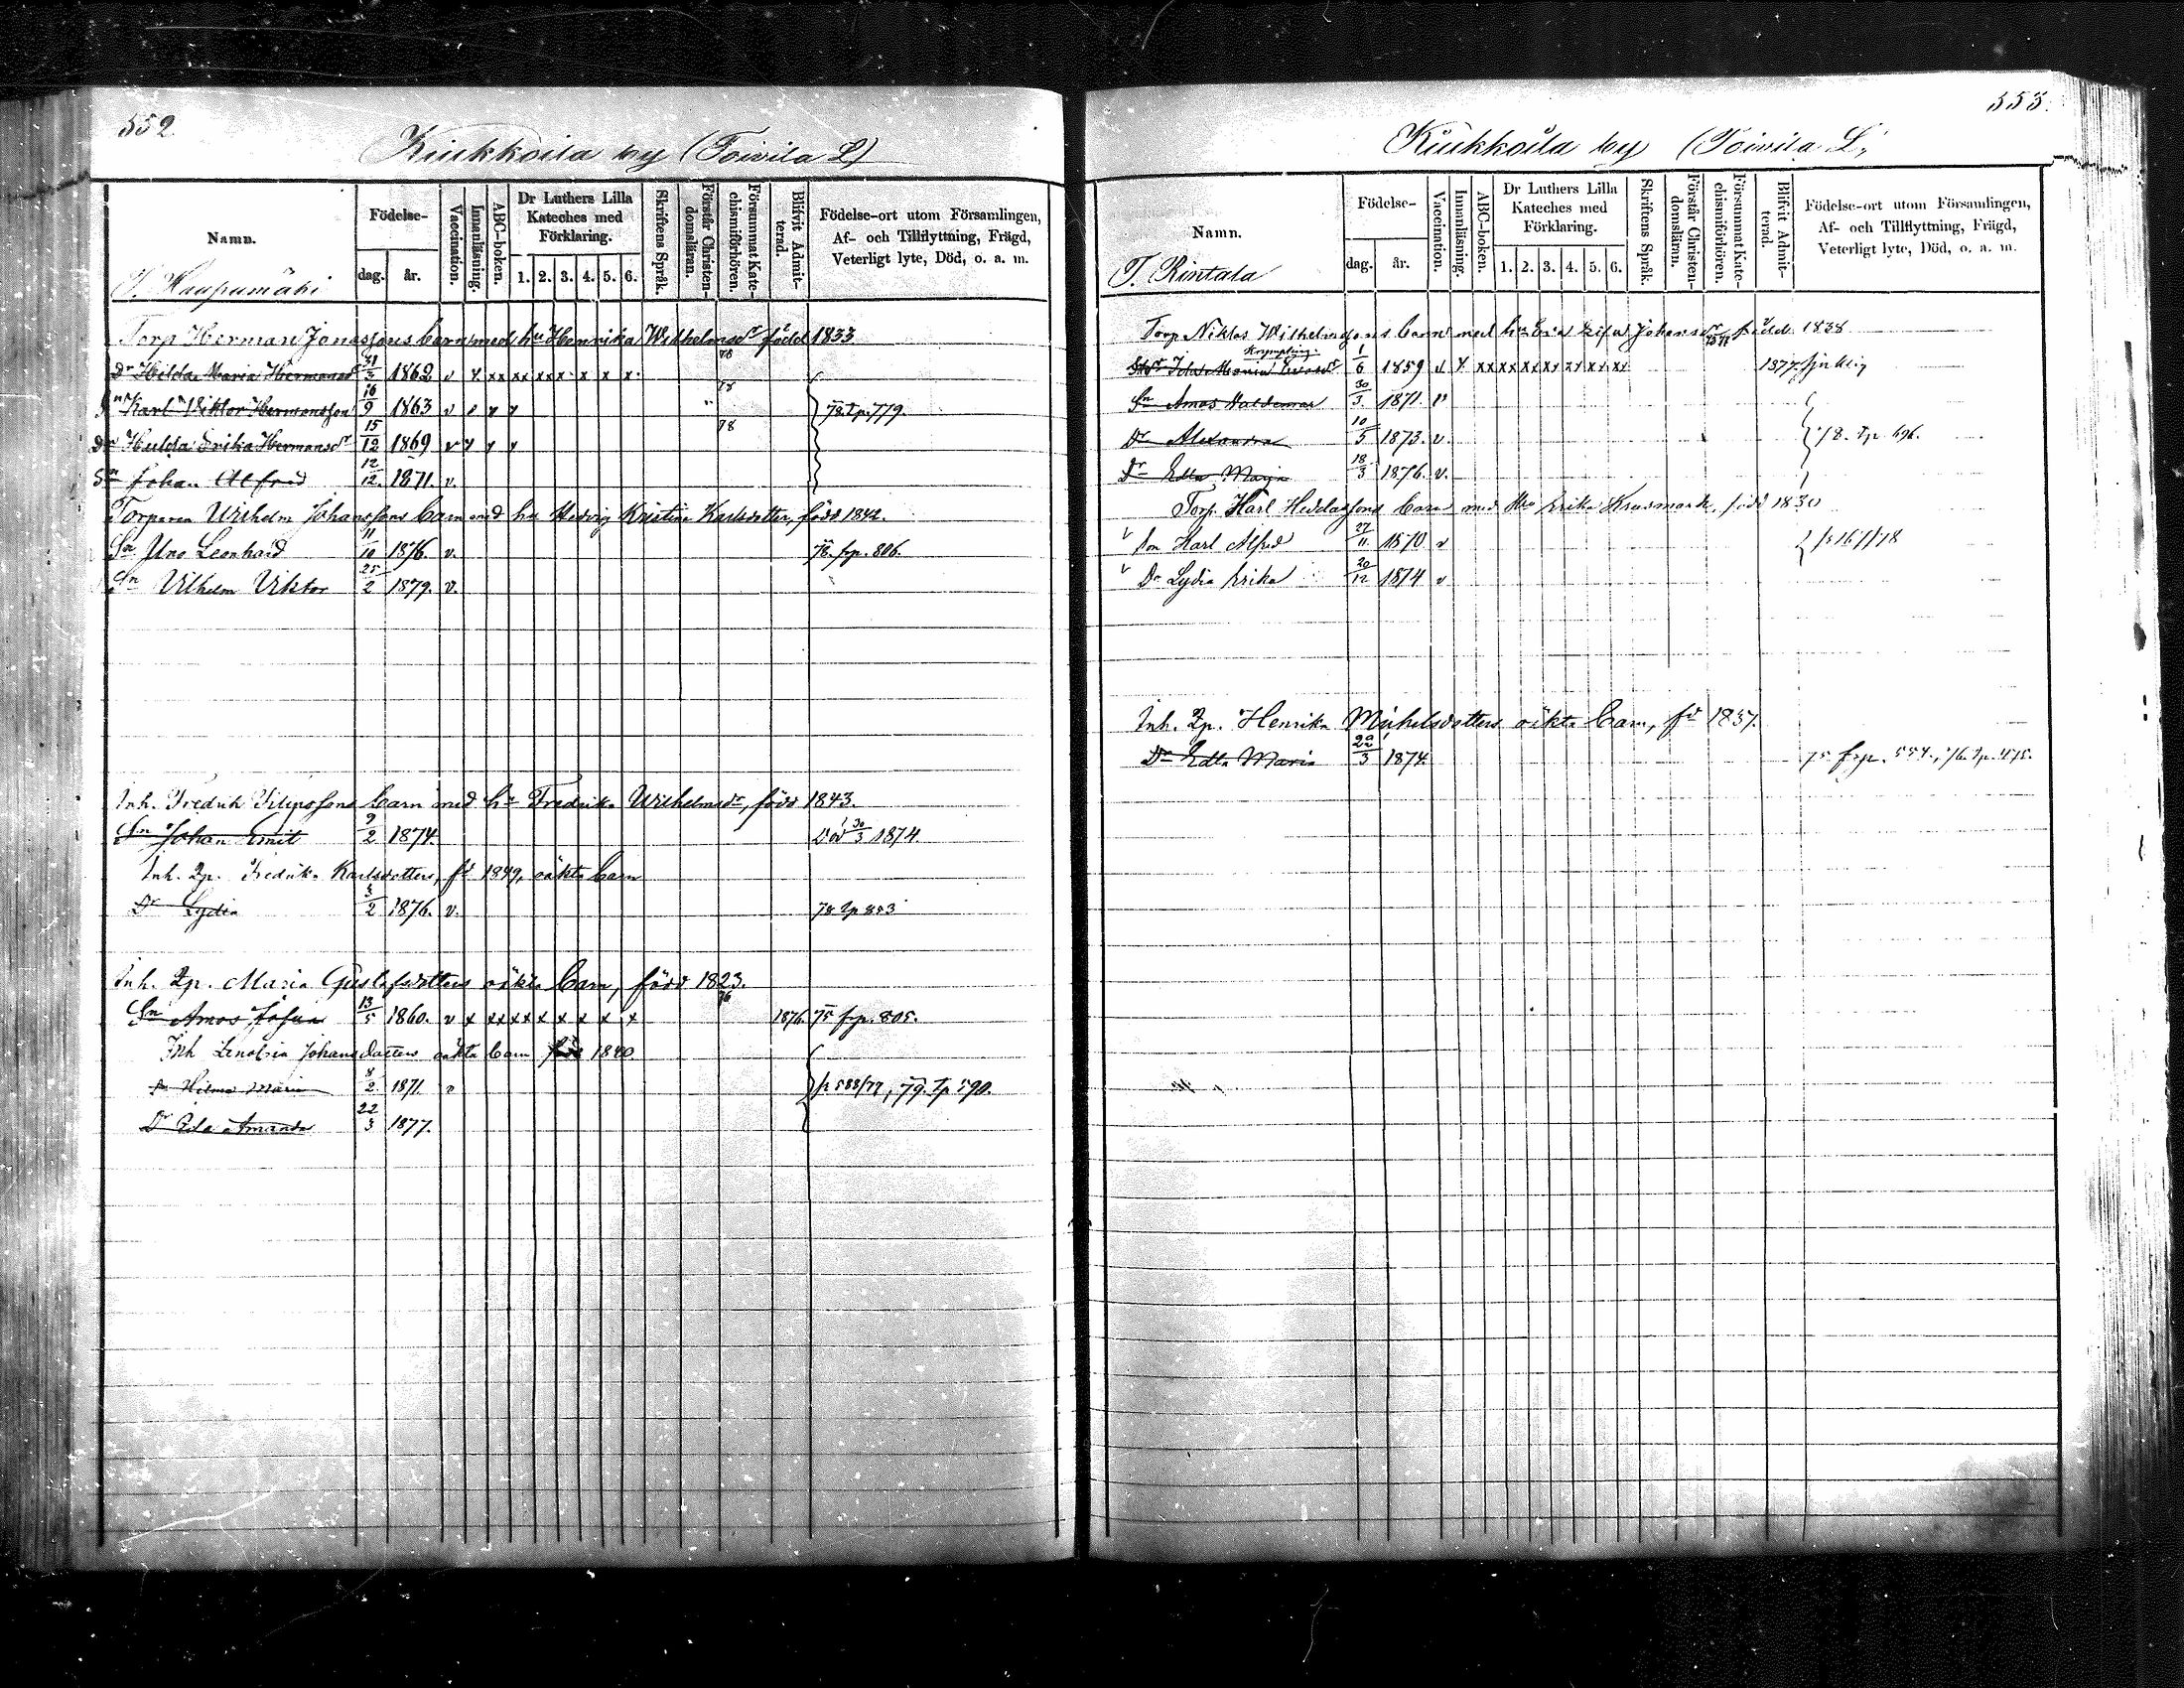 552
Kiukkoila by (Toivila L)
Namn.
Födelse-
dag. år.
Vaccination.
Innanläsning.
ABC-boken.
Dr Luthers Lilla Kateches med Förklaring.
1. 2. 3. 4. 5. 6.
Skriftens Språk.
Förstår Christendomsläran.
Försummat Katechismiförhören.
Blifvit Admitterad.
Födelse-ort utom Församlingen, Af- och Tillflyttning, Frägd, Veterligt lyte, Död, o. a. m.
T. Haupumäki
Torp Herman Jonassons barn med hu Henrika Wilhelmsdr född 1833
Dr Hilda Maria Hermansdr 1862 v x xx xx xx x x x x 78
Sn Karl Viktor Hermansson 16/9 1863 v x x x 78 78. tp. 779.
Dr Hulda Erika Hermansdr 15/12 1869 v x x x 78
Sn Johan Alfred 12/12. 1871. v.
Torparen Wilhelm Johanssons barn med hu Hedvig Kristina Karlsdotter, född 1842.
Sn Uno Leonhard 11/10 1876. v. 78. frp. 806.
Sn Vilhelm Viktor 25/2 1879. v.
Inh. Fredrik Filipssons barn med hu Fredrika Wilhelmsdr, född 1843.
Sn Johan Emil 9/2 1874. Död 30/3 1874.
Inh. Qp. Fredrika Karlsdotters, fd 1849, oäkta barn
Dr Lydia 2 1876. v. 78 tp 853
Inh. Qp. Maria Gustafsdotters oäkta barn, född 1823.
Sn Amos Josua 13/5 1860. v x xx xx x x x x x 76 1876. 75 frp. 805.
Inh Johansdotters oäkta barn född 1840
Dr Hilma Maria 8/2. 1871. v fr 588/77, 79. tp 590.
Dr Eda Amanda 22/3 1877.
553.
Kiukkoila by (Toivila L,
Namn.
Födelse-
dag. år.
Vaccination.
Innanläsning.
ABC-boken.
Dr Luthers Lilla Kateches med Förklaring.
1. 2. 3. 4. 5. 6.
Skriftens Språk.
Förstår Christendomsläran.
Försummat Katechismiförhören.
Blifvit Admitterad.
Födelse-ort utom Församlingen, Af- och Tillflyttning, Frägd, Veterligt lyte, Död, o. a. m.
T. Rintala
Torp Niklas Wilhelmssons barn med hu Eva Lisa Johansdr, född 1838
Krympling
Ida Maria 1/6 1859 v x xx xx xx xx xx xx xx 1877. Sjuklig
Sn Amos Waldemar 30/3. 1871. v
Dr Alexandra 10/5 1873. v. 78. tp. 696.
Dr Edla Maja 18/3 1876. v.
Torp. Karl Hedlassons barn med hu Erika Krusmark, född 1830
v Son Karl Alfred 27/11. 1870 v fr 167/78
v Dr Lydia Erika 20/12 1874 v
Inh. Qp. Henrika Mickelsdotters oäkta barn, fd 1837.
Dr Edla Maria 22/3 1874. 75 frp. 554., 76. tp. 475.